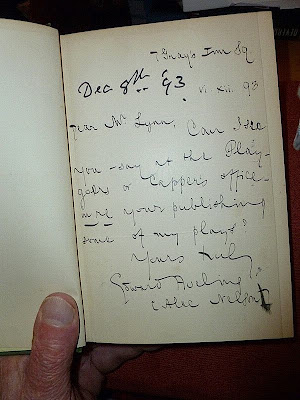 7 Grays Inn Sq
Dec 8th '93
VI. XII. 93
Dear Mr Lynn, Can I see
you - say at the Play-
goers or Capper's office -
in re your publishing
some of my plays?
Yours truly
Edward Aveling
(Alec Nelson)